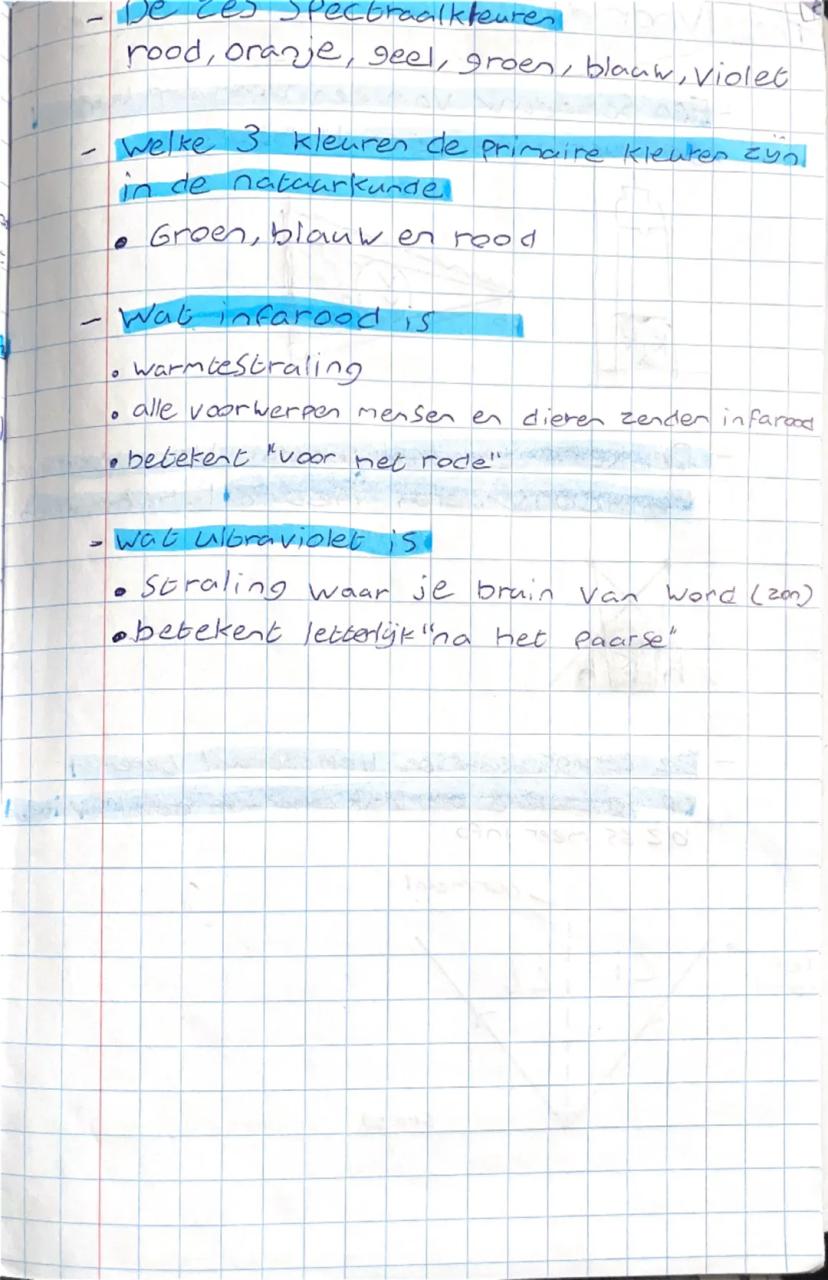 - De zes spectraalkleuren
rood, oranje, geel, groen, blauw, violet
- Welke 3 kleuren de primaire kleuren zijn
in de natuurkunde
• Groen, blauw en rood
- Wat infarood is
• warmtestraling
• alle voorwerpen mensen en dieren zenden infarood
• betekent "voor het rode"
- wat ultraviolet is
• Straling waar je bruin van word (zon)
• betekent letterlijk "na het paarse"